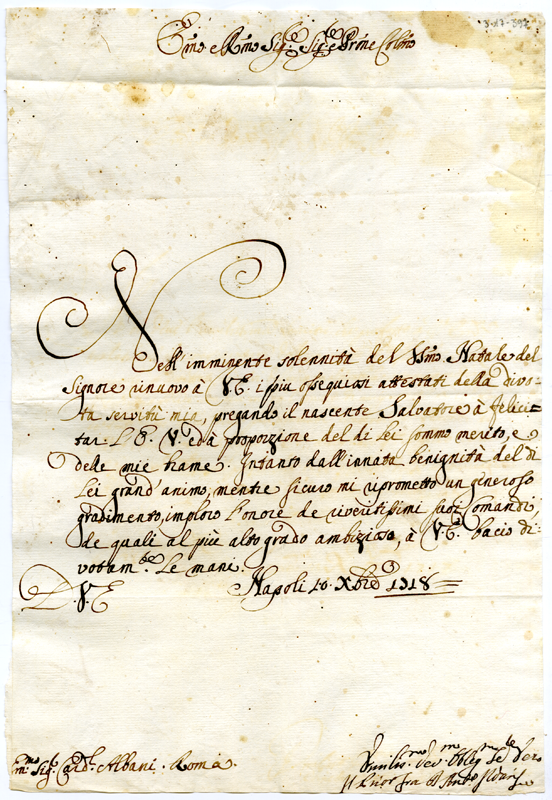 Em̃o e Rm̃o Sig.re Sig.re Prõne Colmõ
Nell' imminente solennità del SSm̃o Natale del
Signore rinuovo à V.E. i piu ossequiosi attestati della divo-
ta servitù mia, pregando il nascente Salvatore à felici=
tar L'E. V. ed à proporzione del di Lei sommo merito, e
delle mie brame. Intanto dall'innata benignità del di
Lei grand'animo, mentre sicuro mi riprometto un generoso
gradimento, imploro l'onore de riveritissimi suoi Comandi,
de quali al più alto grado ambizioso, à V.E. bacio di-
votam.te Le mani.
D. V. E
Napoli 10. Xbre 1718
Em.mo Sig.r Card.l Albani. Roma.
Umiliss.mo Dev.mo Oblig.mo Se.re Vero